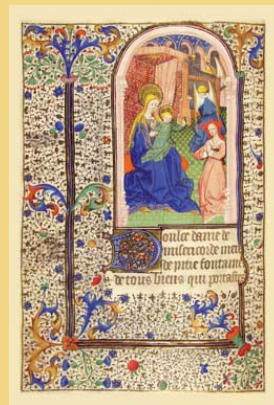 Doulce dame de
misericorde mere
de pitie fontaine
de tous biens qui portastes